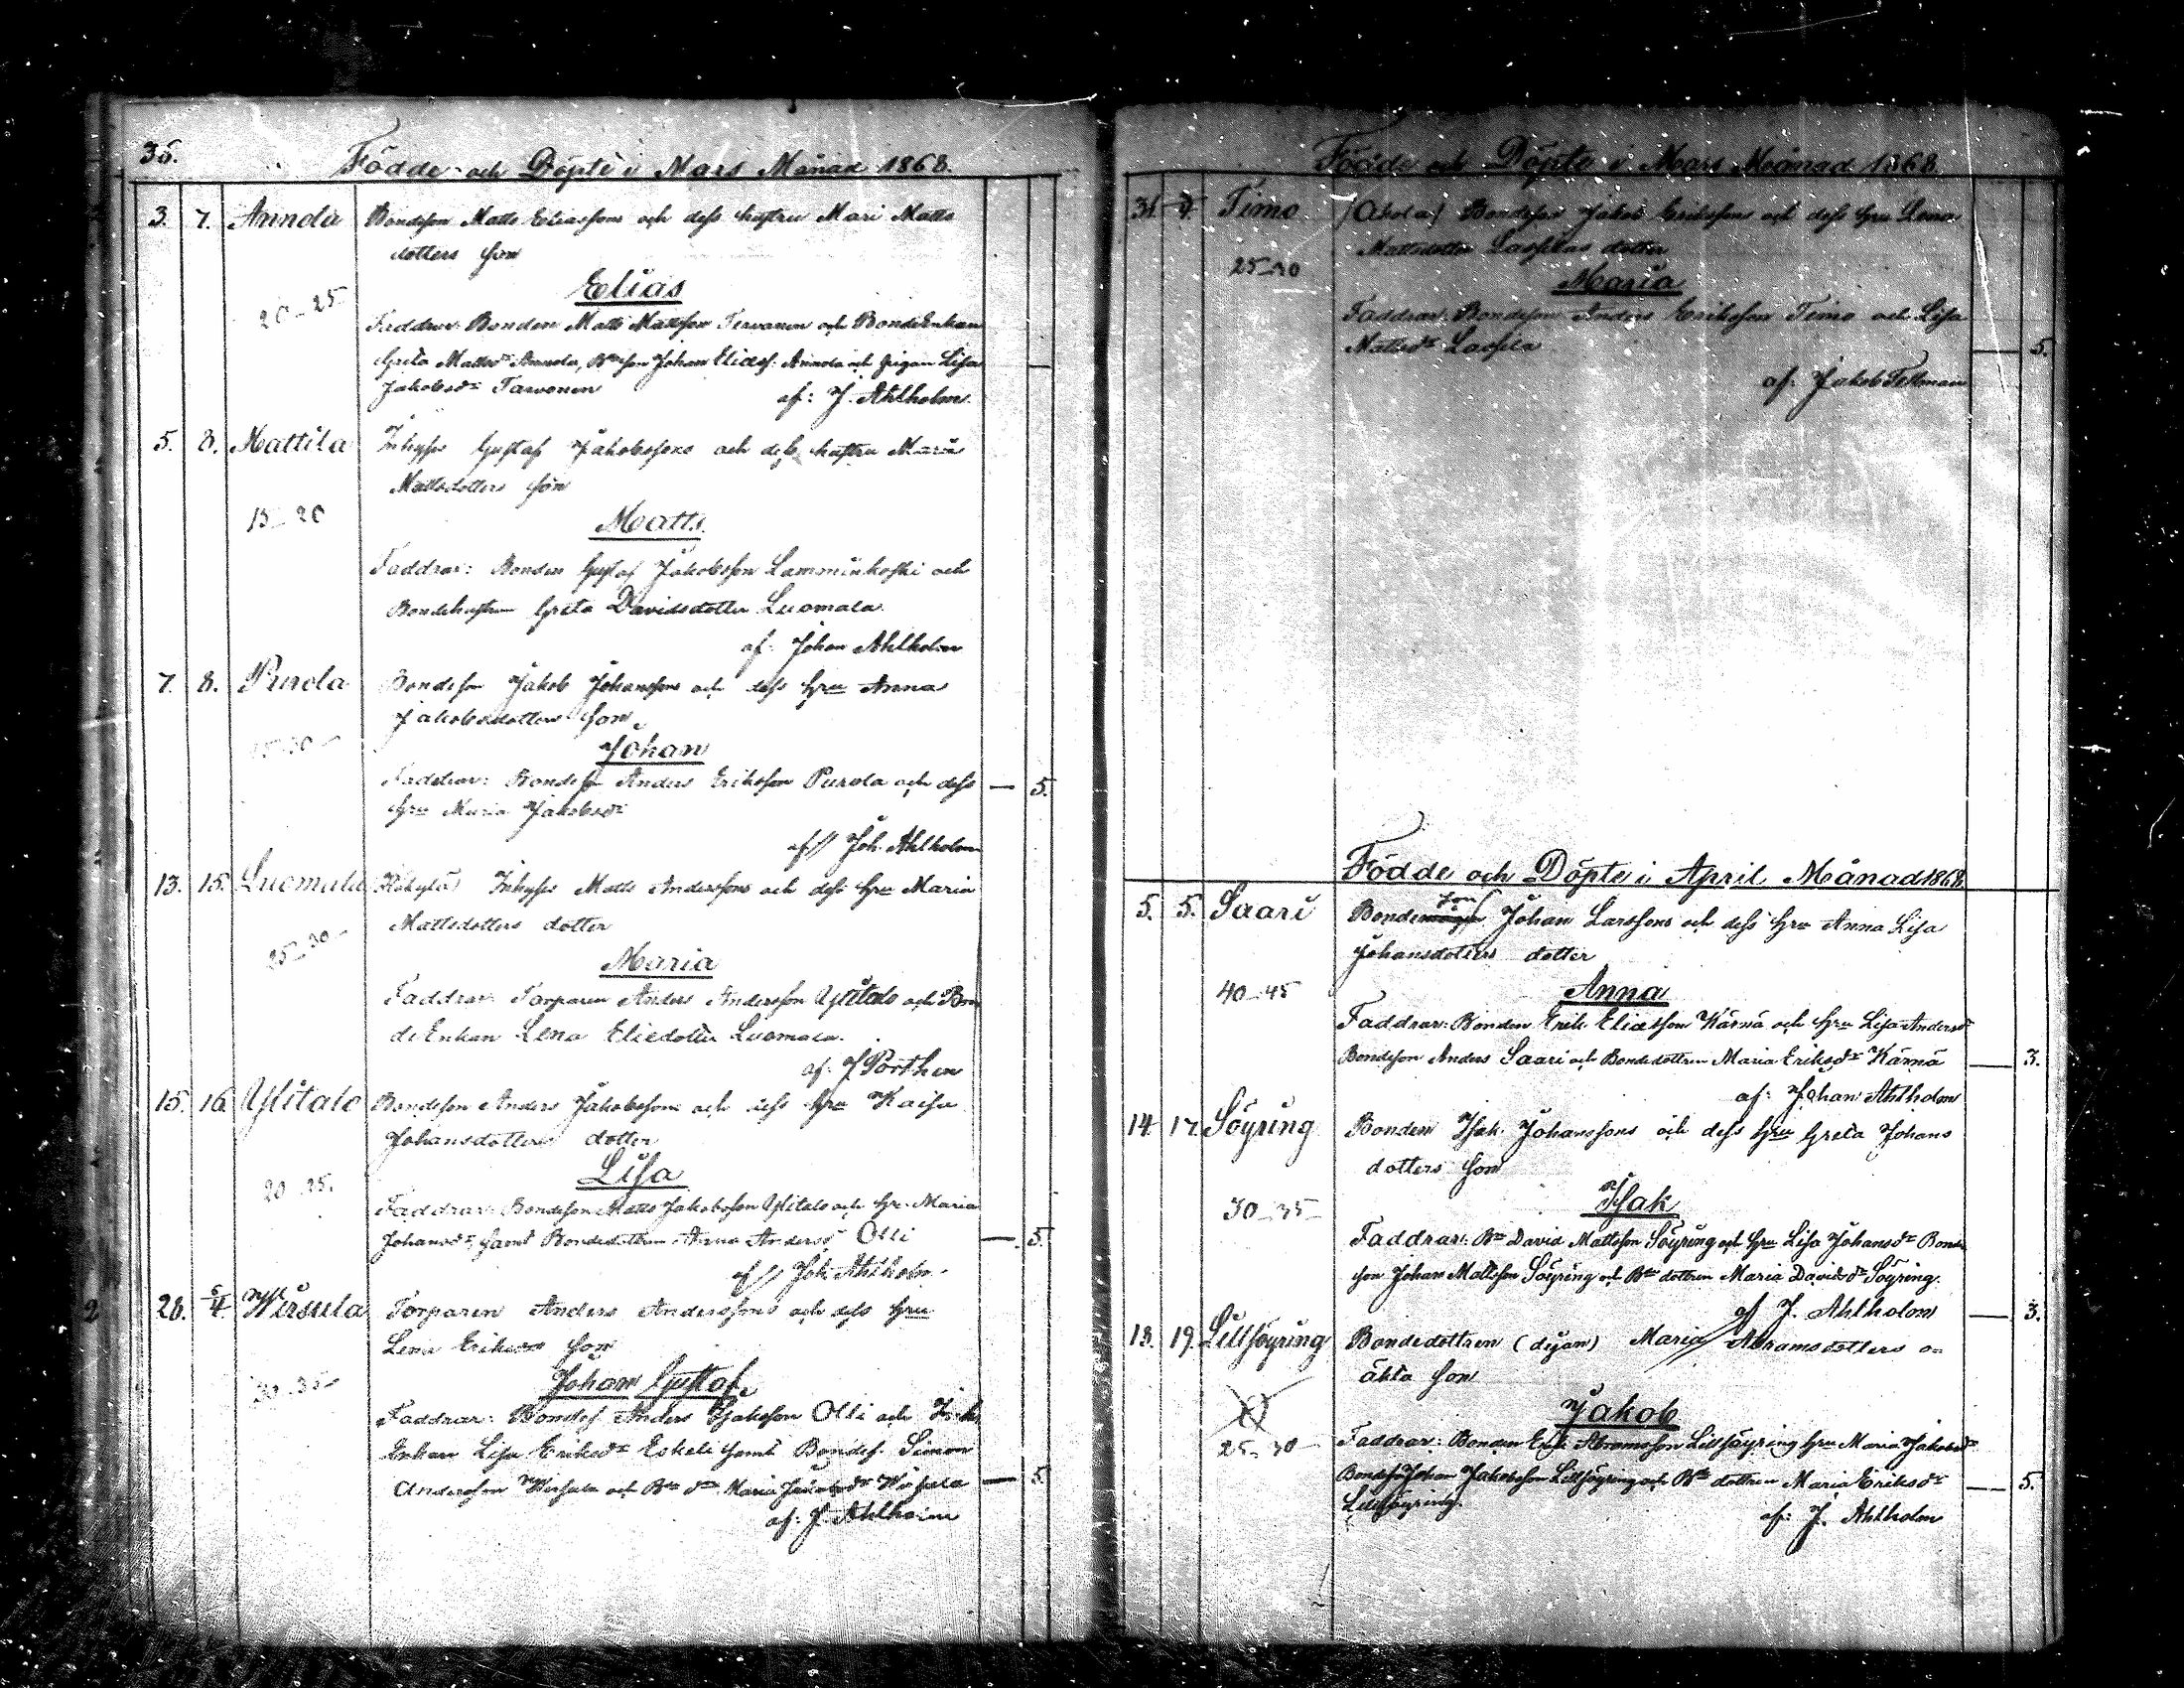 36.
Födde och Döpte i Mars Månad 1868.
3. 7. Annola Bondeson Matts Eliassons och dess hustru Mari Matts
dotters son
20-25
Elias
Faddrar: Bonden Matts Mattsson Tarvonen och BondeEnkan
Greta Mattsdr Annola, Bdeson Johan Eliass. Annola och pigan Lisa
Jakobsdr Tarvonen
af: J. Ahlholm.
5. 8. Mattila Inhyses Gustaf Jakobssons och dess hustru Maria
Mattsdotters son
15-20
Matts.
Faddrar: Bonden Gustaf Jakobsson Lamminkoski och
Bondehustrun Greta Davidsdotter Luomala.
af. Johan Ahlholm
7. 8. Purola Bondeson Jakob Johanssons och dess Hru Anna
Jakobsdotters son
Johan
Faddrar: Bondeson Anders Eriksson Purola och dess
Hru Maria Jakobsdr
— 5.
af// Joh. Ahlholm
13. 15. Luomala Inhyses Matts Anderssons och dess Hru Maria
Mattsdotters dotter
25-30-
Maria
Faddrar: Torparen Anders Andersson Ylitalo och Bon
deEnkan Lena Eliedotter Luomala.
af. J Porthen
15. 16. Ylitalo Bondeson Anders Jakobssons och dess Hru Kaisa
Johansdotters dotter
Lisa
20-25.
Faddrar: Bondeson Matts Jakobsson Ylitalo och Hr. Maria
Johansdr, samt Bondedottren Anna Andersdr Olli
— 5.
af// Joh Ahlholm.
2 28. 5/4 Wirsula Torparen Anders Anderssons och dess Hru
Lena Eriksdrs son
30-35-
Johan Gustaf.
Faddrar: Bondes. Anders Isaksson Olli och
Enkan Lisa Eriksdr Eskeli samt Bondes. Simon
Andersson Wirsula och Bde dr. Maria Jakobsdr Wirsula
— 5.
af: J. Ahlholm
Födde och Döpte i Mars Månad 1868.
31. Timo (Ahola) Bondeson Jakob Erikssons och dess Hru Lenas
Mattsdotter Lassilas dotter
25-30
Maria
Faddrar: Bondeson Anders Eriksson Timo och Lisa
Mattsdr Lassila
— 5.
af: Jakob Tellman
Födde och Döpte i April Månad 1868
5. 5. Saari Bonde son Johan Larssons och dess Hru Anna Lisa
Johansdotters dotter
40-45
Anna
Faddrar: Bonden Erik Eliasson Kärnä och Hru Lisa Andersdr
Bondeson Anders Saari och Bondedottren Maria Eriksdr Kärnä
— 3.
af: Johan Ahlholm
14 17. Söyring Bonden Isak Johanssons och dess Hru Greta Johans
dotters son
30-35-
Isak
Faddrar: Bde David Mattsson Söyring och Hru Lisa Johansdr Bonde
son Johan Mattsson Söyring och Bde dottren Maria Davidsdr Söyring.
af J. Ahlholm
— 3.
13. 19. Lillsöyring Bondedottren (dejan) Maria Abramsdotters o=
äkta son
25-30-
Jakob
Faddrar: Bonden Erik Abramsson Lillsöyring Hru Maria Jakobsdr
Bondeson Johan Jakobsson Lillsöyring och Bde dottren Maria Eriksdr
Lillsöyring.
— 5.
af: J. Ahlholm